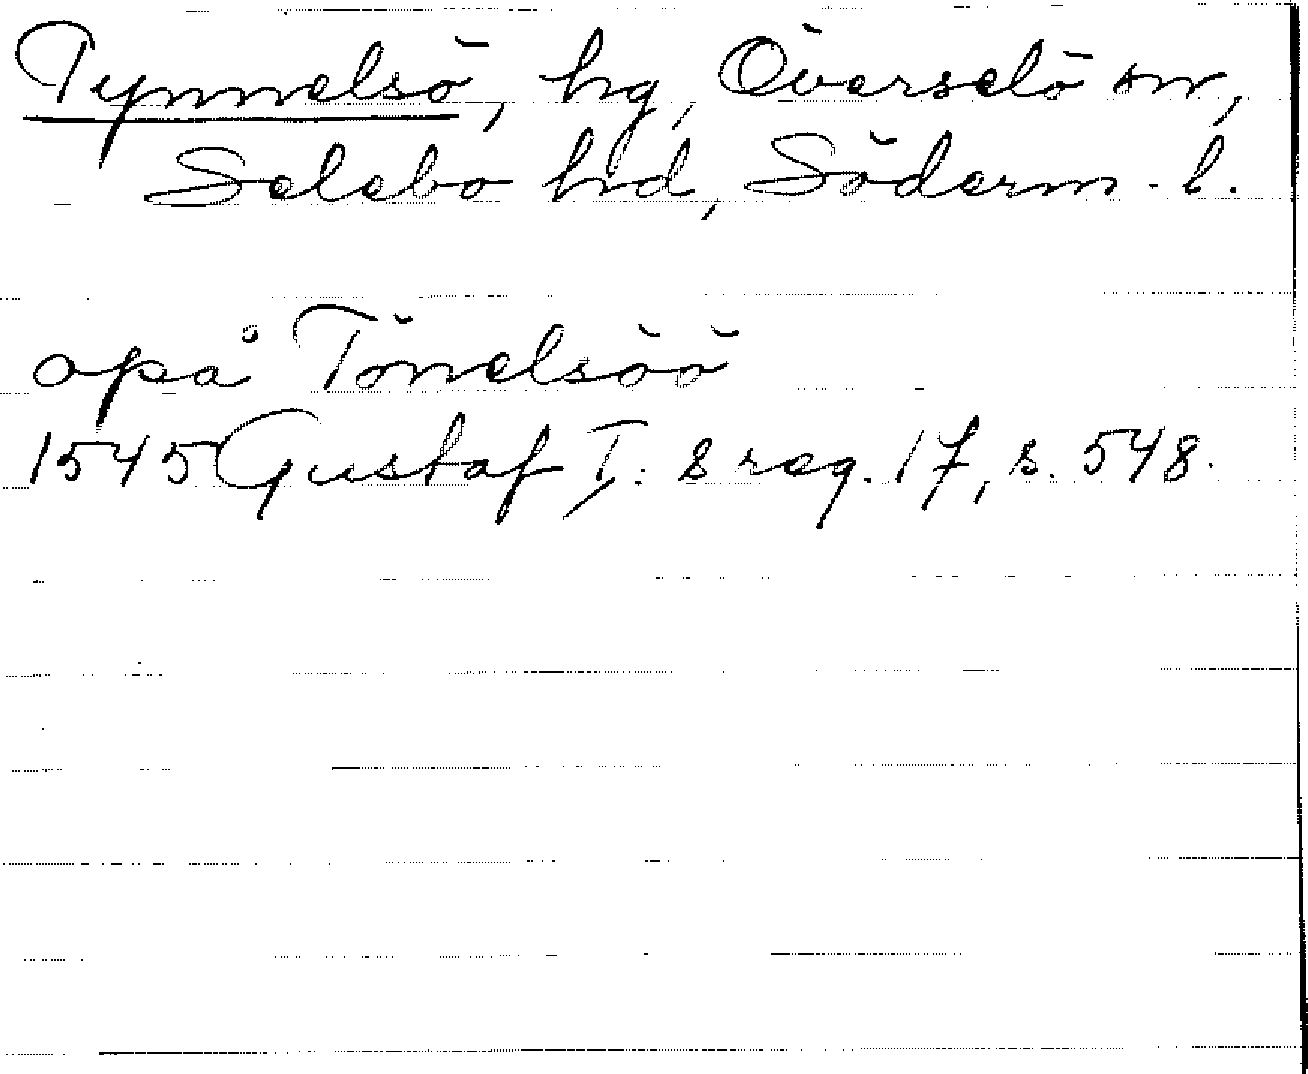 Tynnelsö, hg, Överselö sn,
Selebo hd, Söderm. l.
opå Tönelsöö
1545 Gustaf I:s reg. 17, s. 548.